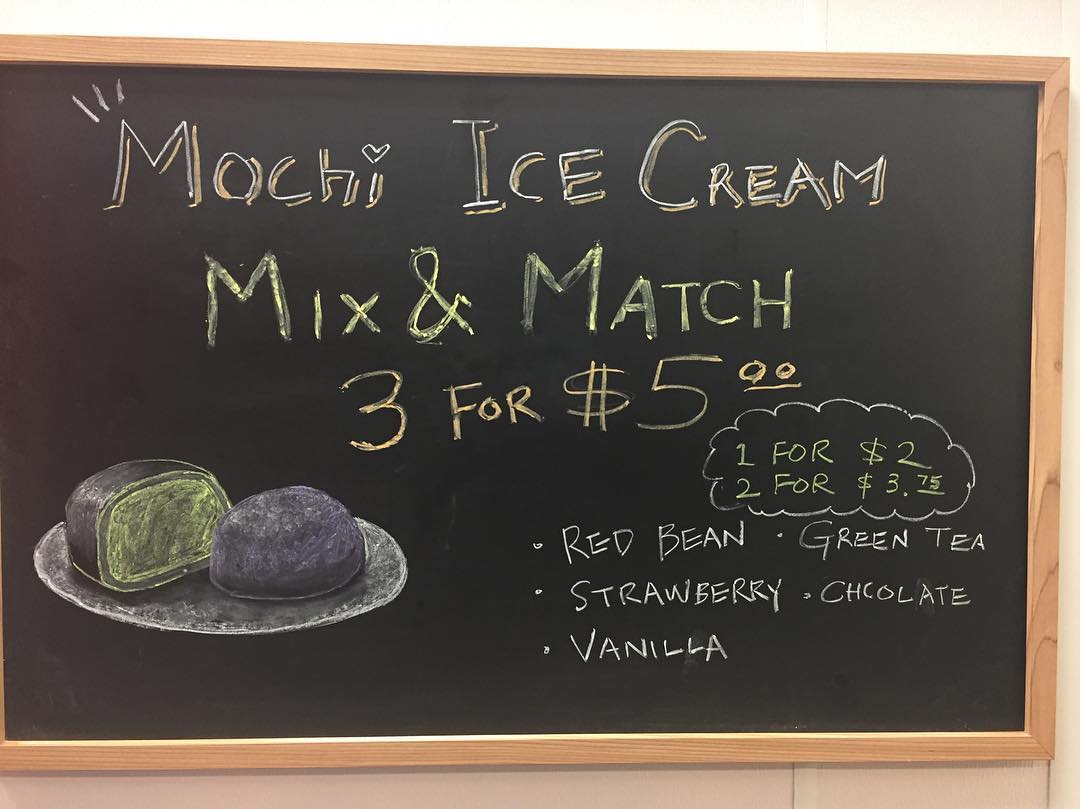 Mochi ICE CREAM
MIX & MATCH
3 FOR $5.00
1 FOR $2
2 FOR $3.75
• RED BEAN • GREEN TEA
• STRAWBERRY • CHCOLATE
• VANILLA